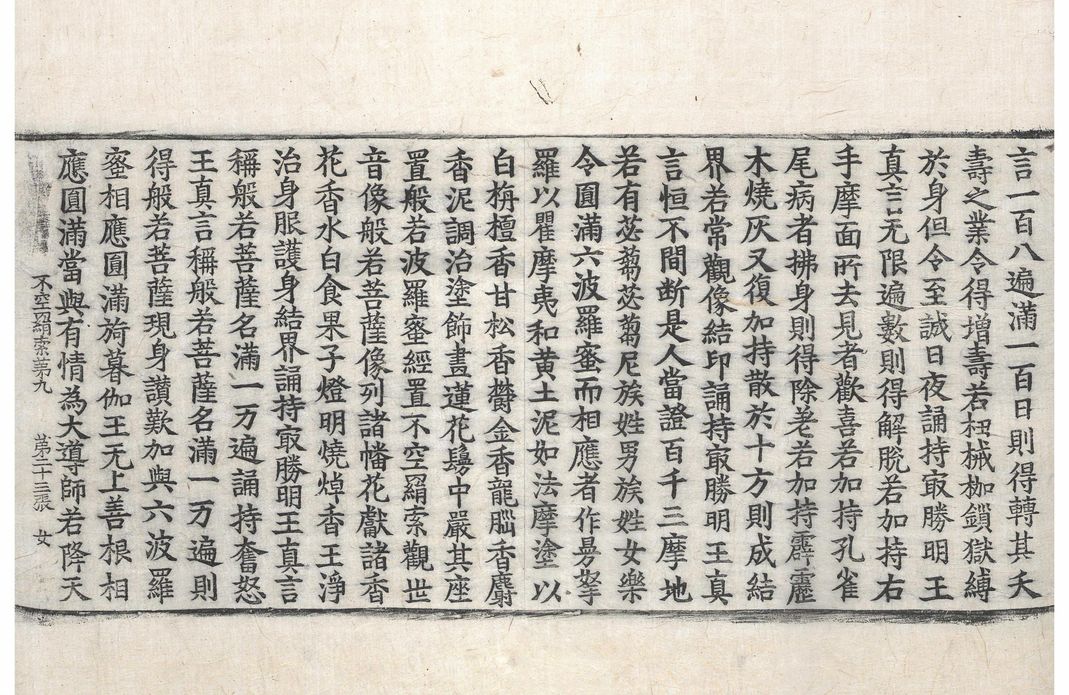 言一百八遍滿一百日則得轉其夭
壽之業令得增壽若杻械枷鎖獄縛
於身但令至誠日夜誦持㝡勝明王
真言无限遍數則得解脫若加持右
手摩面所去見者歡喜若加持孔雀
尾病者拂身則得除差若加持霹靂
木燒灰又復加持散於十方則成結
界若常觀像結印誦持㝡勝明王真
言恒不間断是人當證百千三摩地
若有苾蒭苾蒭尼族姓男族姓女樂
令圓滿六波羅蜜而相應者作曼拏
羅以瞿摩夷和黃土泥如法摩塗以
白栴檀香甘松香欝金香龍腦香麝
香泥調治塗飾畫蓮花鬘中嚴其座
置般若波羅蜜經置不空羂索觀世
音像般若菩薩像列諸幡花獻諸香
花香水白食果子燈明燒焯香王淨
治身服護身結界誦持㝡勝明王真言
稱般若菩薩名滿一万遍誦持奮怒
王真言稱般若菩薩名滿一万遍則
得般若菩薩現身讃歎加與六波羅
蜜相應圓滿旃暮伽王无上善根相
應圓滿當與有情為大導師若降天
不空羂索第九 第二十三張 女